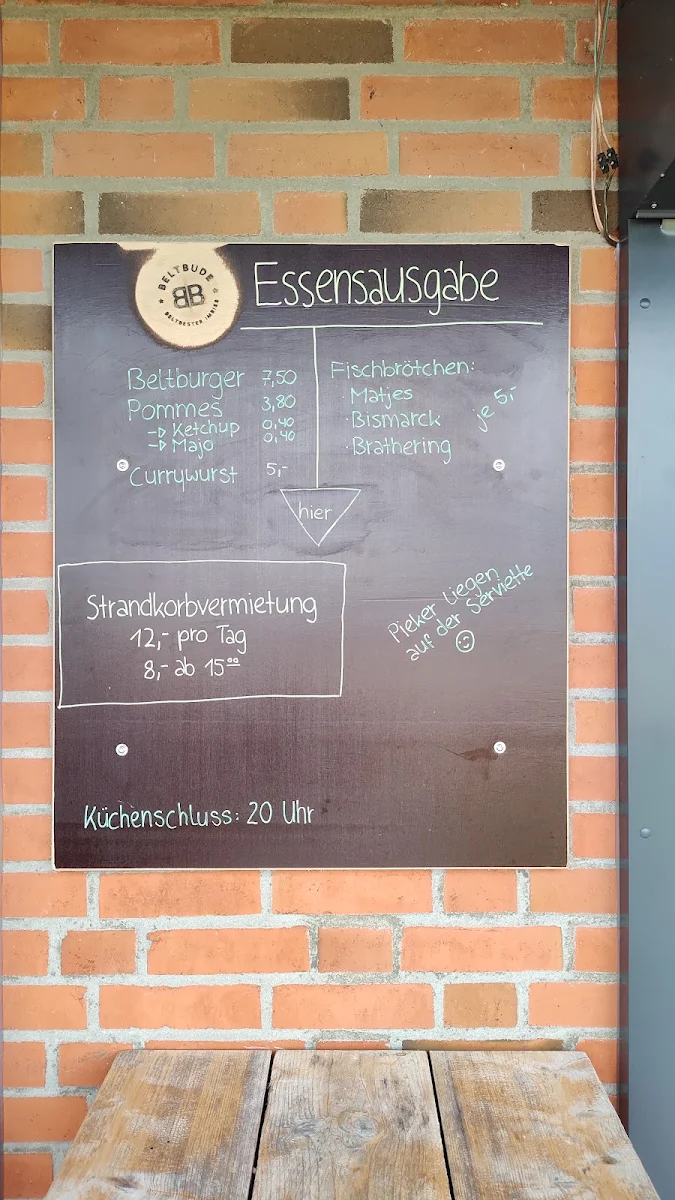 BELTBUDE
BB
BELTBESTER IMBISS
Essensausgabe
Beltburger 7,50
Pommes 3,80
→ Ketchup 0,40
→ Majo 0,40
Currywurst 5,-
Fischbrötchen:
· Matjes
· Bismarck
· Brathering
je 5,-
hier
Strandkorbvermietung
12,- pro Tag
8,- ab 15⁰⁰
Pieker liegen
auf der Serviette
☺
Küchenschluss: 20 Uhr